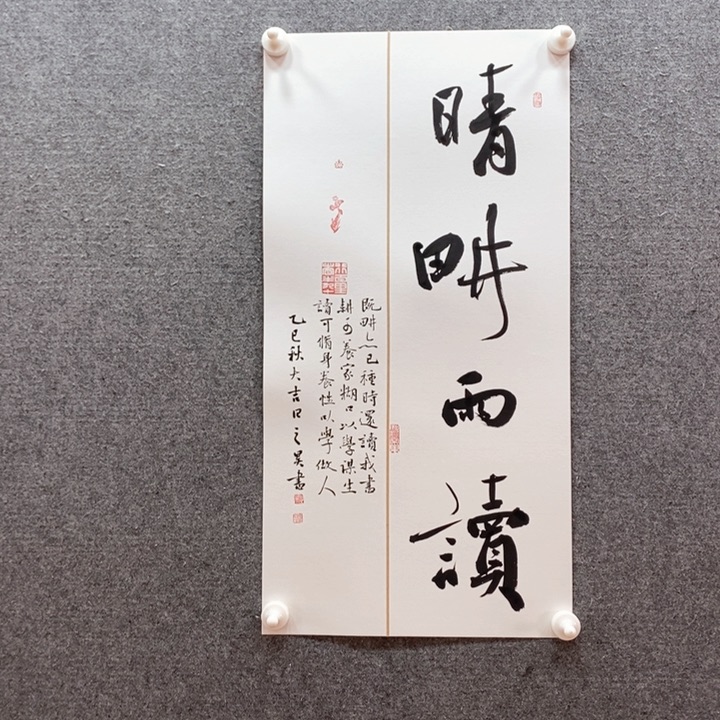 晴畊雨讀
既畊亦已種時還讀我書
耕可養家糊口以學謀生
讀可脩身養性以學做人
乙巳秋大吉日之昊書